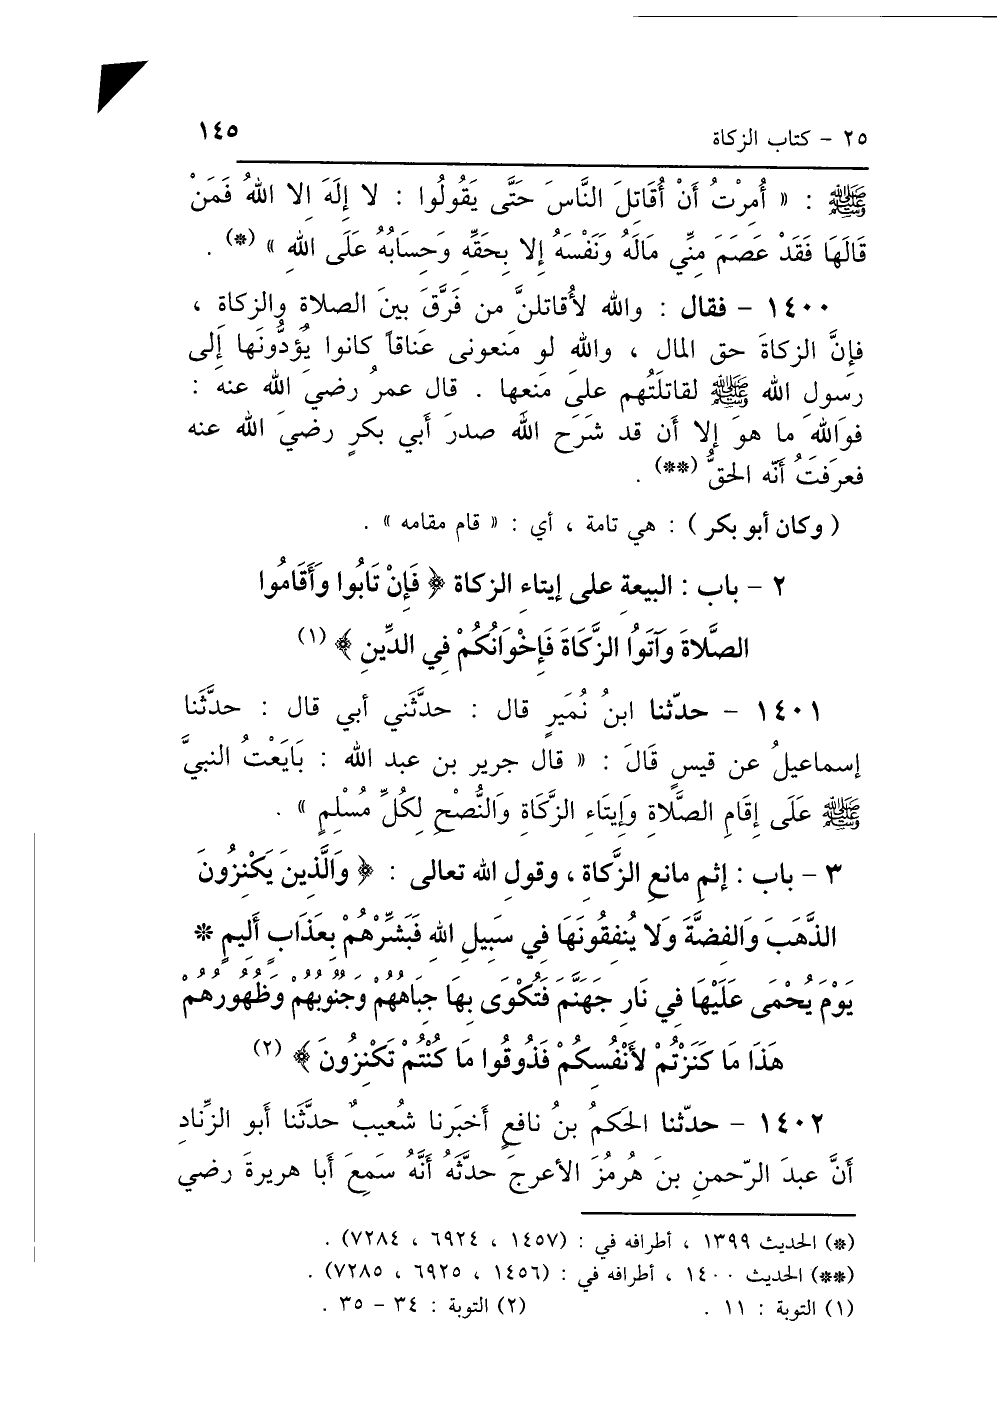 ٢٥ – كتاب الزكاة ١٤٥
ﷺ : « أُمِرْتُ أَنْ أُقَاتِلَ النَّاسَ حَتَّى يَقُولُوا : لا إِلَهَ إلا اللهُ فَمَنْ
قَالَهَا فَقَدْ عَصَمَ مِنِّي مَالَهُ وَنَفْسَهُ إِلا بِحَقِّهِ وَحِسَابُهُ عَلَى اللهِ » (*) .
١٤٠٠ – فقال : واللهِ لأُقاتلنَّ من فَرَّقَ بينَ الصلاةِ والزكاةِ ،
فإنَّ الزكاةَ حق المال ، واللهِ لو مَنعونى عَناقاً كانوا يُؤدُّونَها إلى
رسولِ اللهِ ﷺ لقاتَلتُهم على مَنعها . قال عمرُ رضي الله عنه :
فواَللهِ ما هوَ إلا أن قد شَرَح اللهُ صدرَ أبي بكرٍ رضيَ الله عنه
فعرَفتُ أنّه الحقُّ (**) .
( وكان أبو بكر ) : هي تامة ، أي : « قام مقامه » .
٢ – باب : البيعة على إيتاءِ الزكاة ﴿ فَإِنْ تَابُوا وَأَقَامُوا
الصَّلاةَ وَآتَوُا الزَّكَاةَ فَإِخْوَانُكُمْ فِي الدِّينِ ﴾ (١)
١٤٠١ – حدّثنا ابنُ نُمَيرٍ قال : حدَّثَني أبي قال : حدَّثَنا
إسماعيلُ عن قيسٍ قَالَ : « قال جرير بن عبد الله : بَايَعْتُ النبيَّ
ﷺ عَلَى إِقَامِ الصَّلاةِ وَإِيتَاءِ الزَّكَاةِ وَالنُّصْحِ لِكُلِّ مُسْلِمٍ » .
٣ – باب : إثمِ مانعِ الزَّكاة ، وقولِ الله تعالى : ﴿ وَالَّذِينَ يَكْنِزُونَ
الذَّهَبَ وَالفِضَّةَ وَلا يُنفِقُونَهَا فِي سَبِيلِ اللهِ فَبَشِّرْهُمْ بِعَذَابٍ أَلِيمٍ *
يَوْمَ يُحْمَى عَلَيْهَا فِي نَارِ جَهَنَّمَ فَتُكْوَى بِهَا جِبَاهُهُمْ وَجُنُوبُهُمْ وَظُهُورُهُمْ
هَذَا مَا كَنَزْتُمْ لأَنْفُسِكُمْ فَذُوقُوا مَا كُنْتُمْ تَكْنِزُونَ ﴾ (٢)
١٤٠٢ – حدّثنا الحَكمُ بنُ نافعٍ أخبَرنا شُعيبٌ حدَّثَنا أبو الزِّنادِ
أنَّ عبدَ الرّحمنِ بنَ هُرمُزَ الأعرجَ حدَّثَهُ أنَّهُ سَمعَ أبا هريرةَ رضي
(*) الحديث ١٣٩٩ ، أطرافه في : (١٤٥٧ ، ٦٩٢٤ ، ٧٢٨٤) .
(**) الحديث ١٤٠٠ ، أطرافه في : (١٤٥٦ ، ٦٩٢٥ ، ٧٢٨٥) .
(١) التوبة : ١١ . (٢) التوبة : ٣٤ – ٣٥ .